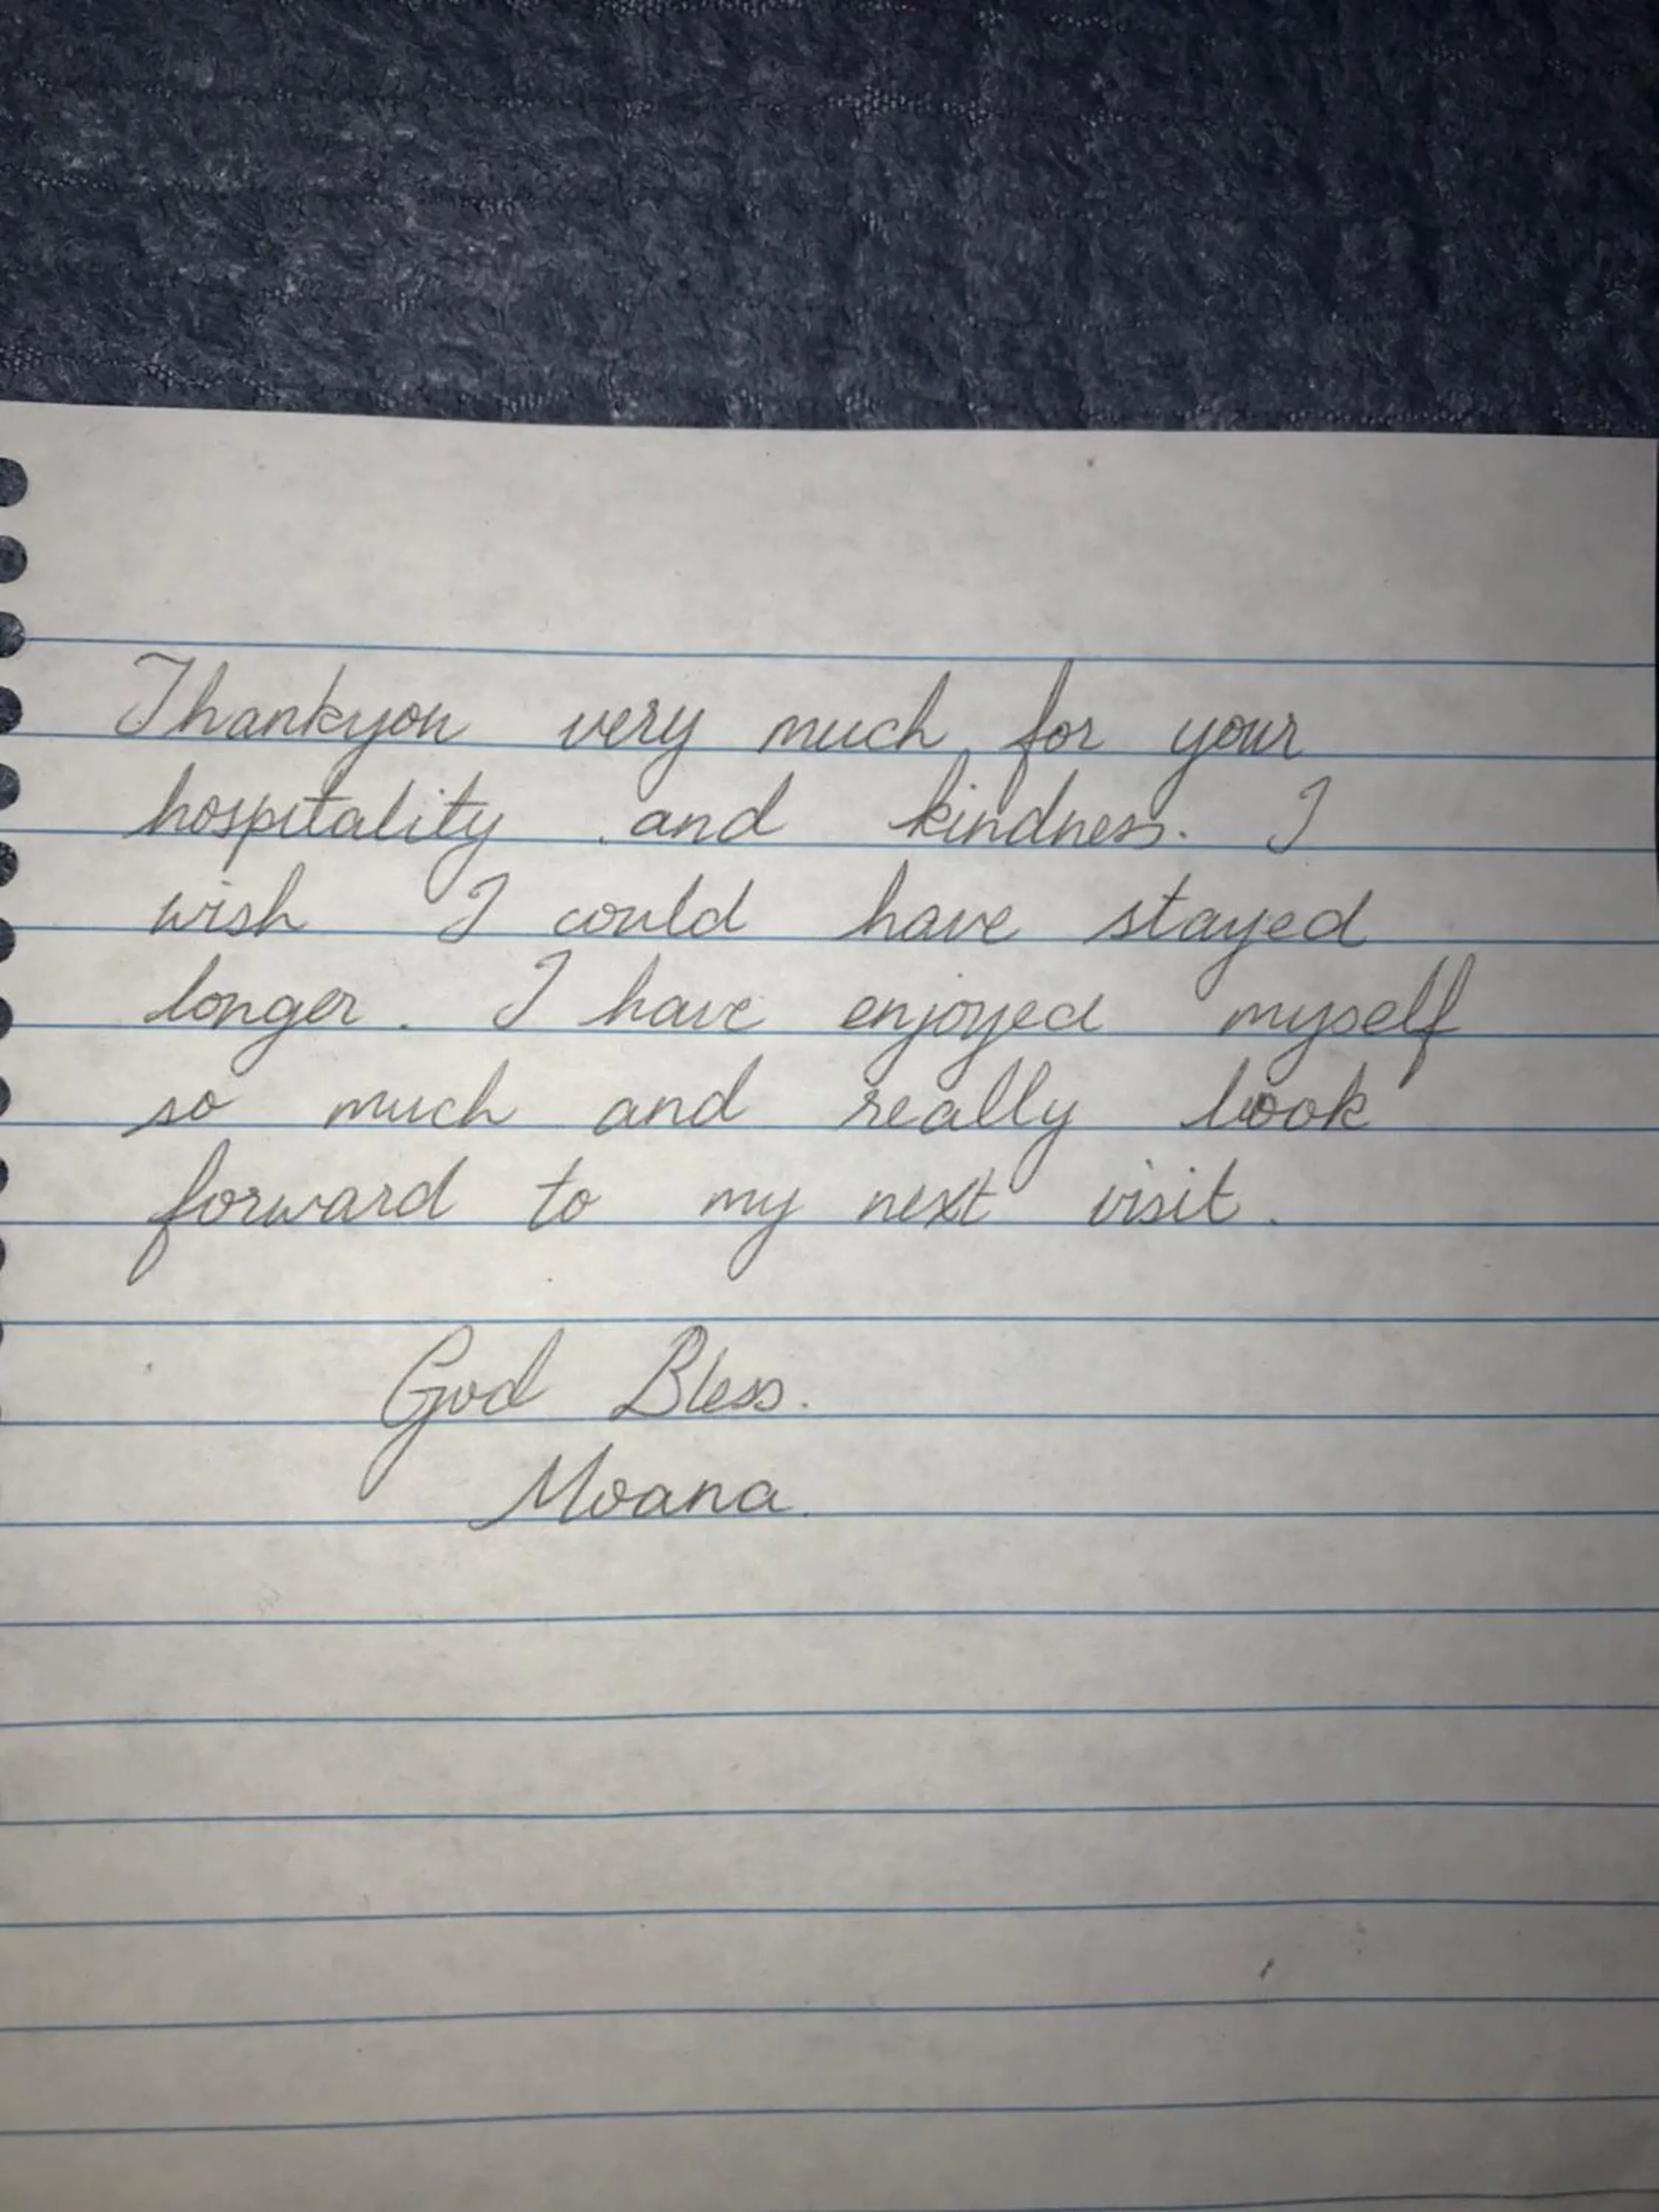 Thankyou very much for your
hospitality and kindness. I
wish I could have stayed
longer. I have enjoyed myself
so much and really look
forward to my next visit.
God Bless.
Moana.